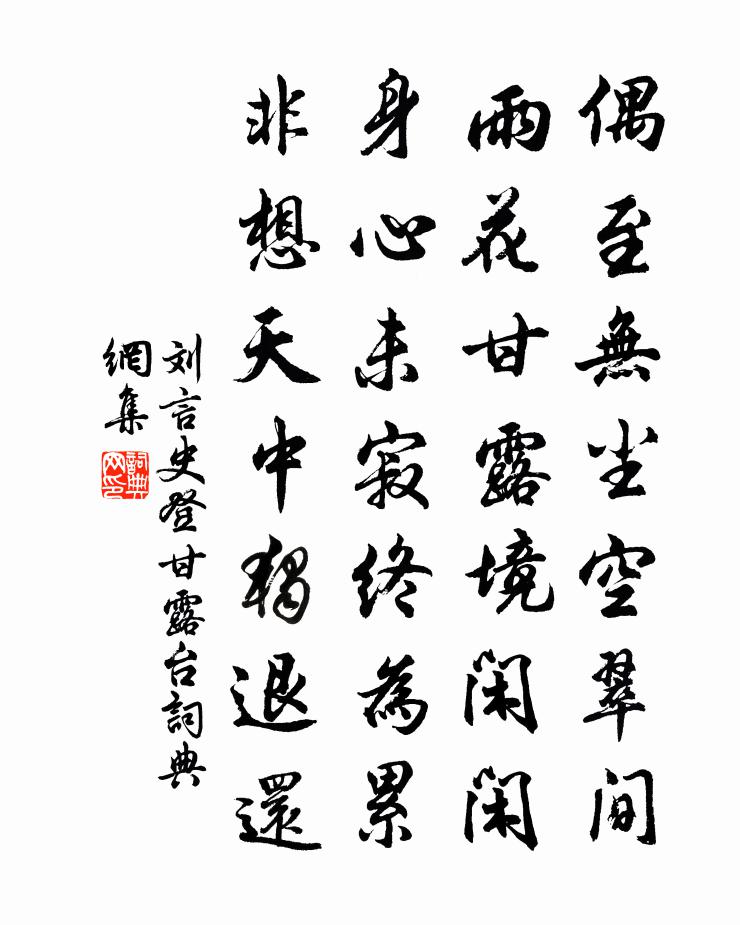 偶至無尘空翠间
雨花甘露境闲闲
身心未寂终為累
非想天中独退還
刘言史登甘露台詞典
網集
詞典网印